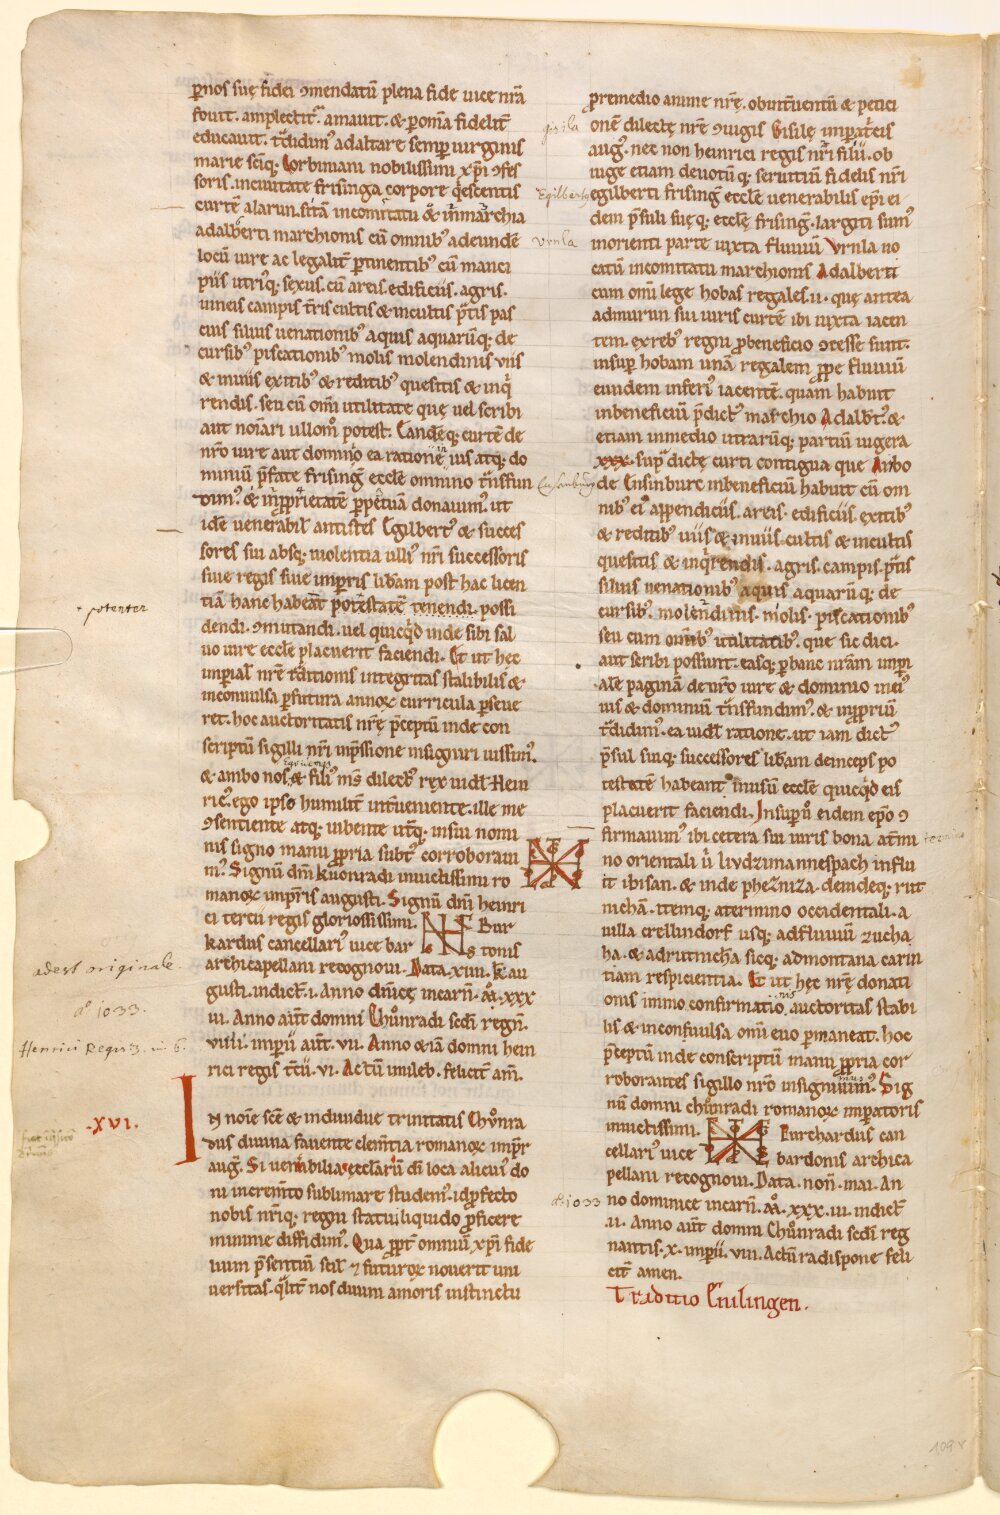 p̄nos suę fidei ɔmendatū plena fide uice nr̄a
fouit. amplectitᷓ. amauit. & p om̄ia fidelit̄
educauit. tᷓdidimꝰ ad altare semp uirginis
marie sc̄iq; Corbiniani nobilissimi xp̄i ɔfes
soris. in ciuitate frisinga corpore q̇escentis
curtē alarun. sitā in comitatu & in marchia
adalberti marchionis cū omnibꝰ ad eundē
locū iure ac legalit̄ ptinentibꝰ cū manci
piis utriq; sexus. cū areis. edificiis. agris.
uineis campis t̄ris cultis & incultis p̄tis pas
cuis siluis uenationibꝰ aquis aquarūq; de
cursibꝰ piscationibꝰ molis molendinis uiis
& inuiis exitibꝰ & reditibꝰ quesitis & inq̇
rendis. seu cū om̄i utilitate que uel scribi
aut nom̄ari ullom̊ potest. Eandēq; curtē de
nr̄o iure aut dominio ea ratione in ius atq; do
miniū p̄fate frisingē eccl̄e omnino tᷓnsfun
dimꝰ. & in pprietatem ppetuā donauimꝰ. ut
idē uenerabil' antistes Egilbertꝰ & succes
sores sui absq; uiolentia ulliꝰ nr̄i successoris
siue regis siue imp̄ris lib̄am post hac licen
tiā hanc habeāt potestatē tenendi. possi
dendi. ɔmutandi. uel quicq̇d inde sibi sal
uo iure eccl̄e placuerit faciendi. Et ut hec
imp̄ial' nr̄e tᷓditionis integritas stabilis &
inconuulsa p futura annoꝝ curricula perseue
ret. hoc auctoritatis nr̄ę p̄ceptū inde con
scriptū sigilli nr̄i inp̄ssione insigniri iussimꝰ.
& ambo nos & filiꝰ mꝰ dilectꝰ rex uidel' Hein
ricꝰ. ego ipse humilit̄ int̄ueniente. ille me
ɔsentiente atq; iubente ut̄q; in sui nomi
nis signo manu ppria subtꝰ corroboraui
mꝰ. Signū dn̄i kuonradi inuictissimi ro
manoꝝ imp̄ris augusti. Signū dn̄i heinri
ci tercii regis gloriosissimi. Bur
kardus cancellariꝰ uice bar tonis
archicapellani recognoui. Data. xiiii. kl̄ au
gusti. indict̄. i. Anno dn̄icę incarn̄. M̊. xxx
iii. Anno aūt domni Chůnradi sc̄di regn̄.
viiii. imperii aūt. vii. Anno & iā domni hein
rici regis t̄cii. vi. Actū imileb. felicit̄ am̄.
.XVI.
IN noīe sc̄e & indiuidue trinitatis Chůnra
dus diuina fauente clem̄tia romanoꝝ imp̄r
auḡ. Si uenerabilia ęcclarū dī loca alicuiꝰ do
ni increm̄to sublimare studemꝰ. id pfecto
nobis nr̄iq; regni statui liquido pficere
minime diffidimꝰ. Qua ppt̄ omniū xp̄i fide
lium p̄sentiū scil' & futuroꝝ nouerit uni
uersitas. qͣlit̄ nos diuini amoris instinctu
p remedio anime nr̄ę. ob int̄uentū & petici
onē dilectę nr̄e ɔiugis Gisilę imp̄ t̄cis
auḡ. nec non heinrici regis nr̄i filii. ob
iuge etiam deuotūq; seruitiū fidelis nr̄i
egilberti frisinḡ eccl̄e uenerabilis ep̄i ei
dem p̄suli suęq; eccl̄ę frisinḡ. largiti sumꝰ
in orienti parte iuxta fluuiū Vrnla no
catū in comitatu marchionis Adalberti
cum om̄i lege hobas regales. ii. que antea
ad murun sui iuris curtē ibi iuxta iacen
tem. ex rebꝰ regni p beneficio ɔcesse sunt.
insup hobam unā regalem ppe fluuiū
eundem inferiꝰ iacentē. quam habuit
in beneficiū p̄dictꝰ marchio Adalbt̄ꝰ. &
etiam in medio utrarūq; partiū iugera
xxx. supᷓ dictę curti contigua que Aribo
de Ensinburc in beneficiū habuit cū om
nibꝰ eiꝰ appendiciis. areis. edificiis. exitibꝰ
& reditibꝰ uiis & inuiis cultis & incultis
quesitis & inq̇rendis. agris. campis. p̄tis
siluis uenationibꝰ aquis aquarūq; de
cursibꝰ. molendinis. molis. piscationibꝰ
seu cum om̄ibꝰ utilitatibꝰ. que sic dici.
aut scribi possunt. easq; p hanc nr̄am imp̄i
alē paginā de nr̄o iure & dominio in eiꝰ
ius & dominiū tᷓnsfundimꝰ. & in ppriū
tᷓdidimꝰ. ea uidel' ratione. ut iam dictꝰ
p̄sul suiq; successores lib̄am deinceps po
testatē habeant in usū eccl̄e quicq̇d eis
placuerit faciendi. Insup u̇ eidem ep̄o ɔ
firmauimꝰ ibi cetera sui iuris bona a t̄mi
no orientali u̇ livdzimannespach influ
it ibisan. & inde phezniza. deindeq; rut
nicha. itemq; a termino occidentali. a
uilla crellindorf usq; ad fluuiū zucha
ha. & ad rutnicha sicq; ad montana carin
tiam respicientia. Et ut hęc nr̄ę donati
onis immo confirmationis auctoritas stabi
lis & inconuulsa om̄i euo pmaneat. hoc
p̄ceptū inde conscriptū manu ppria cor
roborantes sigillo nr̄o insigniuimꝰ. Sig
nū domni chůnradi romanoꝝ imperatoris
inuictissimi. Burchardus can
cellariꝰ uice bardonis archica
pellani recognoui. Data. non̄. mai. An
no dominice incarn̄. M̊. xxx. iii. indict̄
.ii. Anno aūt domni Chůnradi sc̄di reg
nantis. x. imperii. viii. Actū radispone feli
cit̄ amen.
Traditio Enilingen.
gisila
Egilbert9
vrnla
Ensenburg
+ potenter
adest originale.
aº 1033.
Henrici Regis 3.
aº. 1033
109v